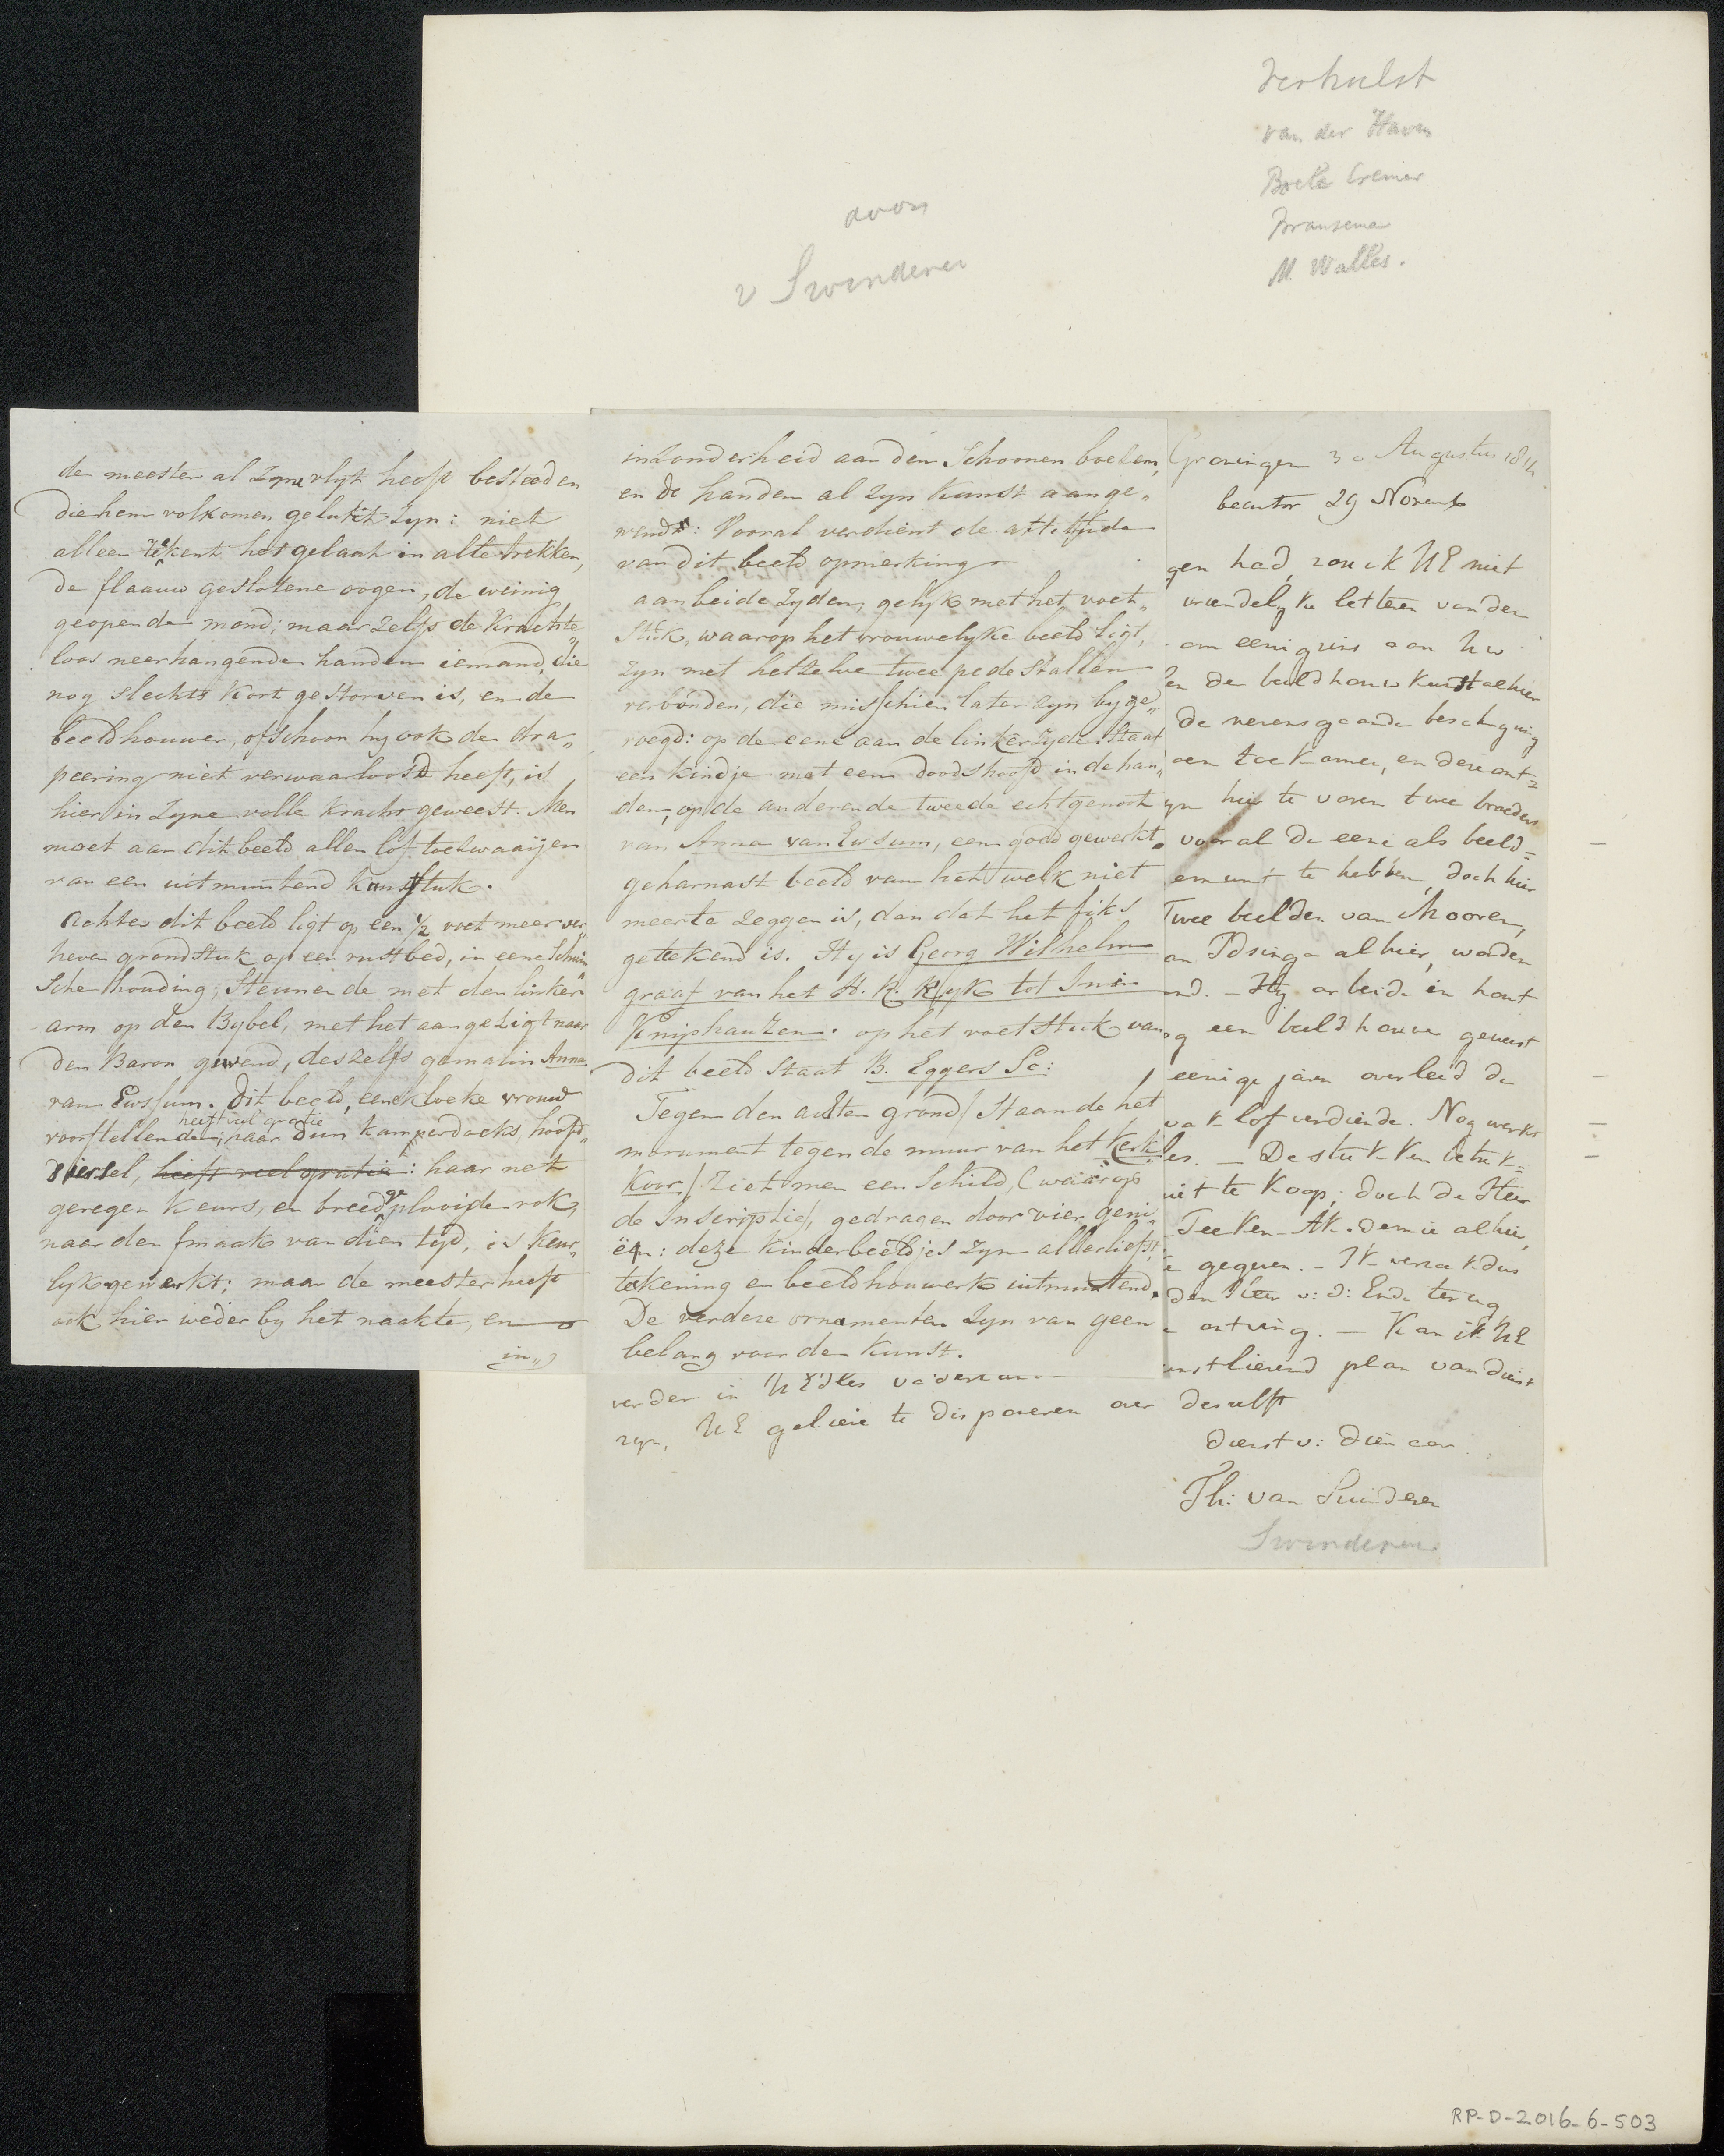 Verhulst
van der Haven
Boele Cremer
Bransema
M. Walles.
door
v Swinderen
de meester al zyne vlyt heeft besteed en
die hem volkomen gelukt zyn: niet
alleen tekent het gelaat in alle trekken,
de flaauw geslotene oogen, de weinig
geopende mond; maar zelfs de krachte„
loos neerhangende handen iemand, die
nog slechts kort gestorven is, en de
beeldhouwer, ofschoon hy ook de dra„
peering niet verwaarloosd heeft, is
hier in zyne volle kracht geweest. Men
moet aan dit beeld allen lof toezwaaijen
van een uitmuntend kunstuk.
Achter dit beeld ligt op een ½ voet meer ver„
heven grondstuk op een rustbed, in eene schuin
sche houding, steunende met den linker„
arm op den Bybel, met het aangezigt naar
den Baron gewend, deszelfs gemalin Anna
van Ewssum. Dit beeld, eene kloeke vrouw
voorstellende, heeft veel gratie; haar dun kamperdoeks hoofd„
siersel, heeft veel gratie: haar net
geregen keurs, en breed geplooide rok,
naar den smaak van dien tyd, is keur„
lyk gewerkt; maar de meester heeft
ook hier weder by het naakte, en
in„
inzonderheid aan den schoonen boezem,
en de handen al zyn kunst aange„
wend: Vooral verdient de attitude
van dit beeld opmerking
aan beide zyden, gelyk met het voet„
stuk, waarop het vrouwelyke beeld ligt,
zyn met hetzelve twee pedestallen
verbonden, die misschien later zyn byge„
voegd: op de eene aan de linkerzyde staat
een kindje met een doodshoofd in de han„
den, op de andere de tweede echtgenoot
van Anna van Ewsum, een goed gewerkt
geharnast beeld van het welk niet
meer te zeggen is, dan dat het fiks
getekend is. Hy is Georg Wilhelm
graaf van het H. R. Ryk tot Inn
Kniphauzen. op het voetstuk van
dit beeld staat B. Eggers Sc:
Tegen den achtergrond / staande het
monument tegen de muur van het Kerk„
Koor / ziet men een schild, (waarop
de Inscriptie), gedragen door vier geni„
ën: deze kinderbeeldjes zyn allerliefst:
tekening en beeldhouwerk uitmuntend.
De verdere ornamenten zyn van geen
belang voor de kunst.
verder in UEdles
zyn, UE gelieve te disponeren over
Groningen 30 Augustus 1814
beantw 29 Novemb
gen had, zou ik UE niet
vriendelyke letteren van den
om eenig aan Uw
en de beeldhouw kunst alhier
de nevensgaande beschryving
oen toekomen, en dezeont=
yn hier te voren twee broeders
vooral de eene als beeld=
emunt te hebben, doch hier
Twee beelden van Mooren,
an Idsinga alhier, worden
nd. - Hy arbeide in hout
og een beeldhouwer geweest
eenige jaren overleed de
vak lof verdiende. Nog werkt
les. - De stukken betrek=
niet te koop; doch de Heer
Teeken-Akademie alhier,
e gegeven. - Ik verzoek dus
den Heer v: d: Ende terug
ontving. - Kan ik UE
unstlievend plan van dienst
deselfs
Dienstv: Dienaar
Th: van Swinderen
Swinderen
RP-D-2016-6-503